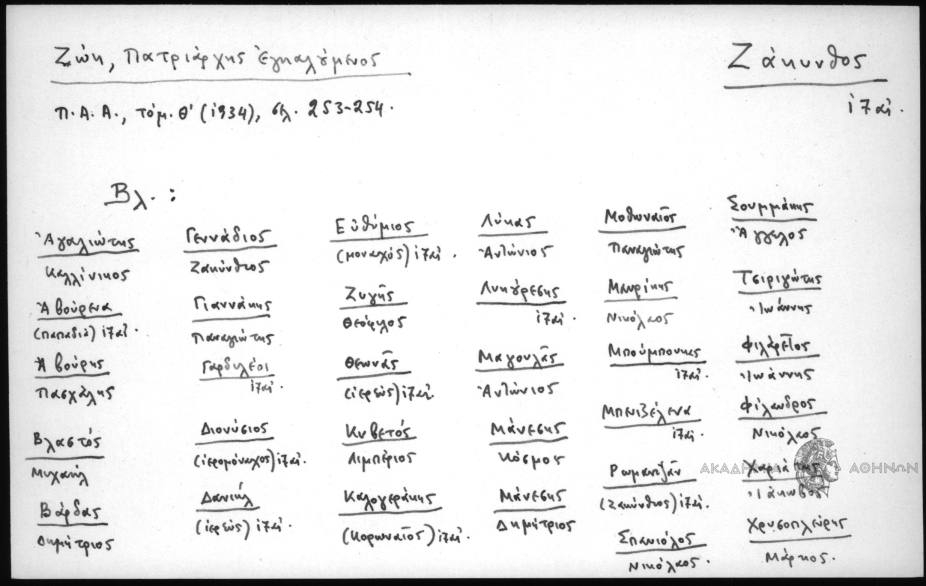 Ζώη, Πατριάρχης Ἐγκαλούμενος
Ζάκυνθος
Π.Α.Α., τόμ. Θ' (1934), σελ. 253-254.
ιζ' αἰ.
Βλ. :
Ἀγαλιώτης
Καλλίνικος
Ἀβούρενα
(παπαδιά) ιζ' αἰ.
Ἀβούρης
Πασχάλης
Βλαστός
Μιχαήλ
Βάρδας
Δημήτριος
Γεννάδιος
Ζακύνθιος
Γιαννάκης
Παναγιώτης
Γαρδιλέοι
ιζ' αἰ.
Διονύσιος
(ἱερομόναχος) ιζ' αἰ.
Δανιήλ
(ἱερεύς) ιζ' αἰ.
Εὐθύμιος
(μοναχός) ιζ' αἰ.
Ζυγῆς
Θεόφιλος
Θεωνᾶς
(ἱερεύς) ιζ' αἰ.
Κυβετός
Λιμπέριος
Καλογεράκης
(Κορωναῖος) ιζ' αἰ.
Λύκας
Ἀντώνιος
Λυκούρεσης
ιζ' αἰ.
Μαγουλᾶς
Ἀντώνιος
Μάνεσης
Κόσμος
Μάνεσης
Δημήτριος
Μοθωναῖος
Παναγιώτης
Μαυρίκης
Νικόλαος
Μπούμπουκης
ιζ' αἰ.
Μπενιζέλενα
ιζ' αἰ.
Ρωμαντζᾶν
(Ζακύνθιος) ιζ' αἰ.
Σπανιόλος
Νικόλαος
Σουμμάκης
Ἄγγελος
Τσιριγώτης
Ἰωάννης
Φιλάρετος
Ἰωάννης
Φίλανδρος
Νικόλαος
Χαριάτης
Ἰάκωβος
Χρυσοπλεύρης
Μάρκος.
ΑΚΑΔΗΜΙΑ ΑΘΗΝΩΝ